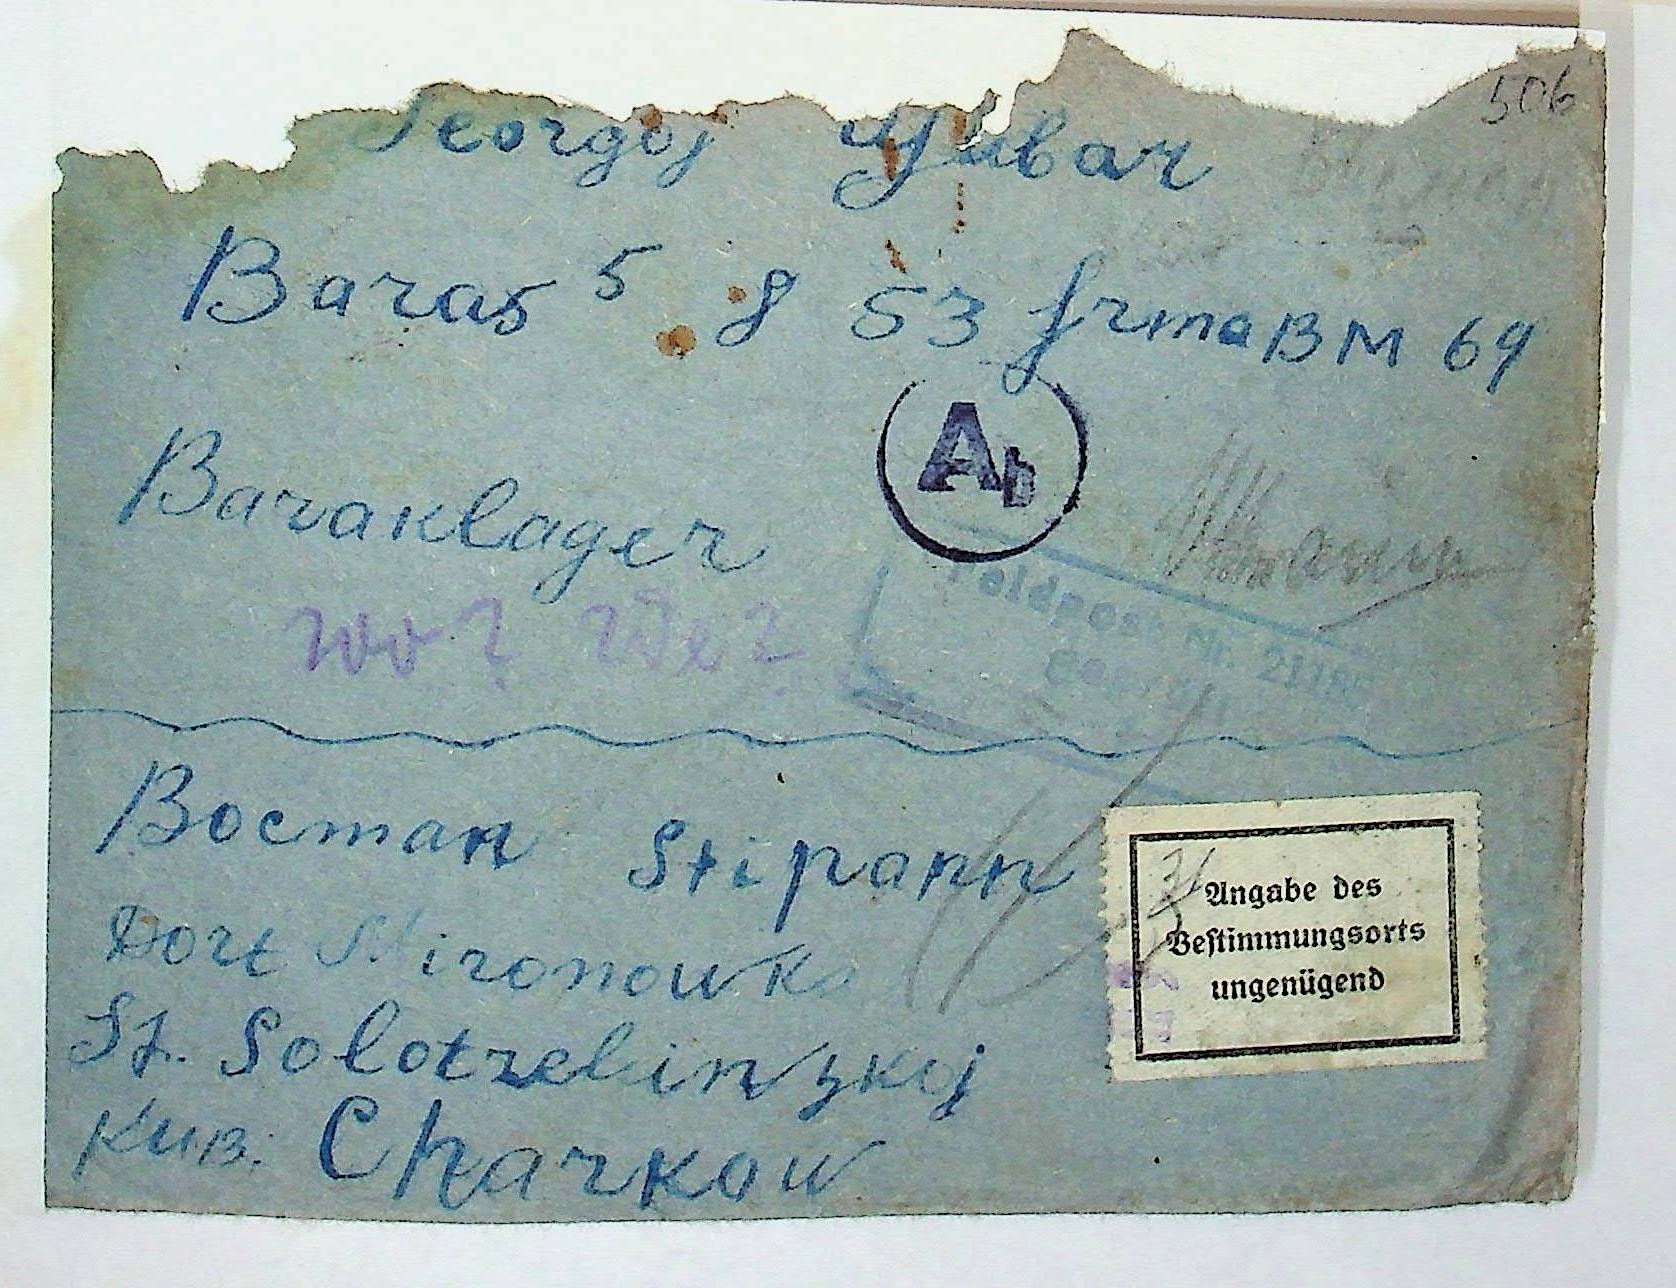 506
Georgij
Baras 5 8 53 firma BM 69
Ab
Baraklager
Wo?
Feldpost Nr.
Bocman Stipann
Dorf Mironowka
St. Solotzelinzkoj
Кив. Charkow
Angabe des
Bestimmungsorts
ungenügend